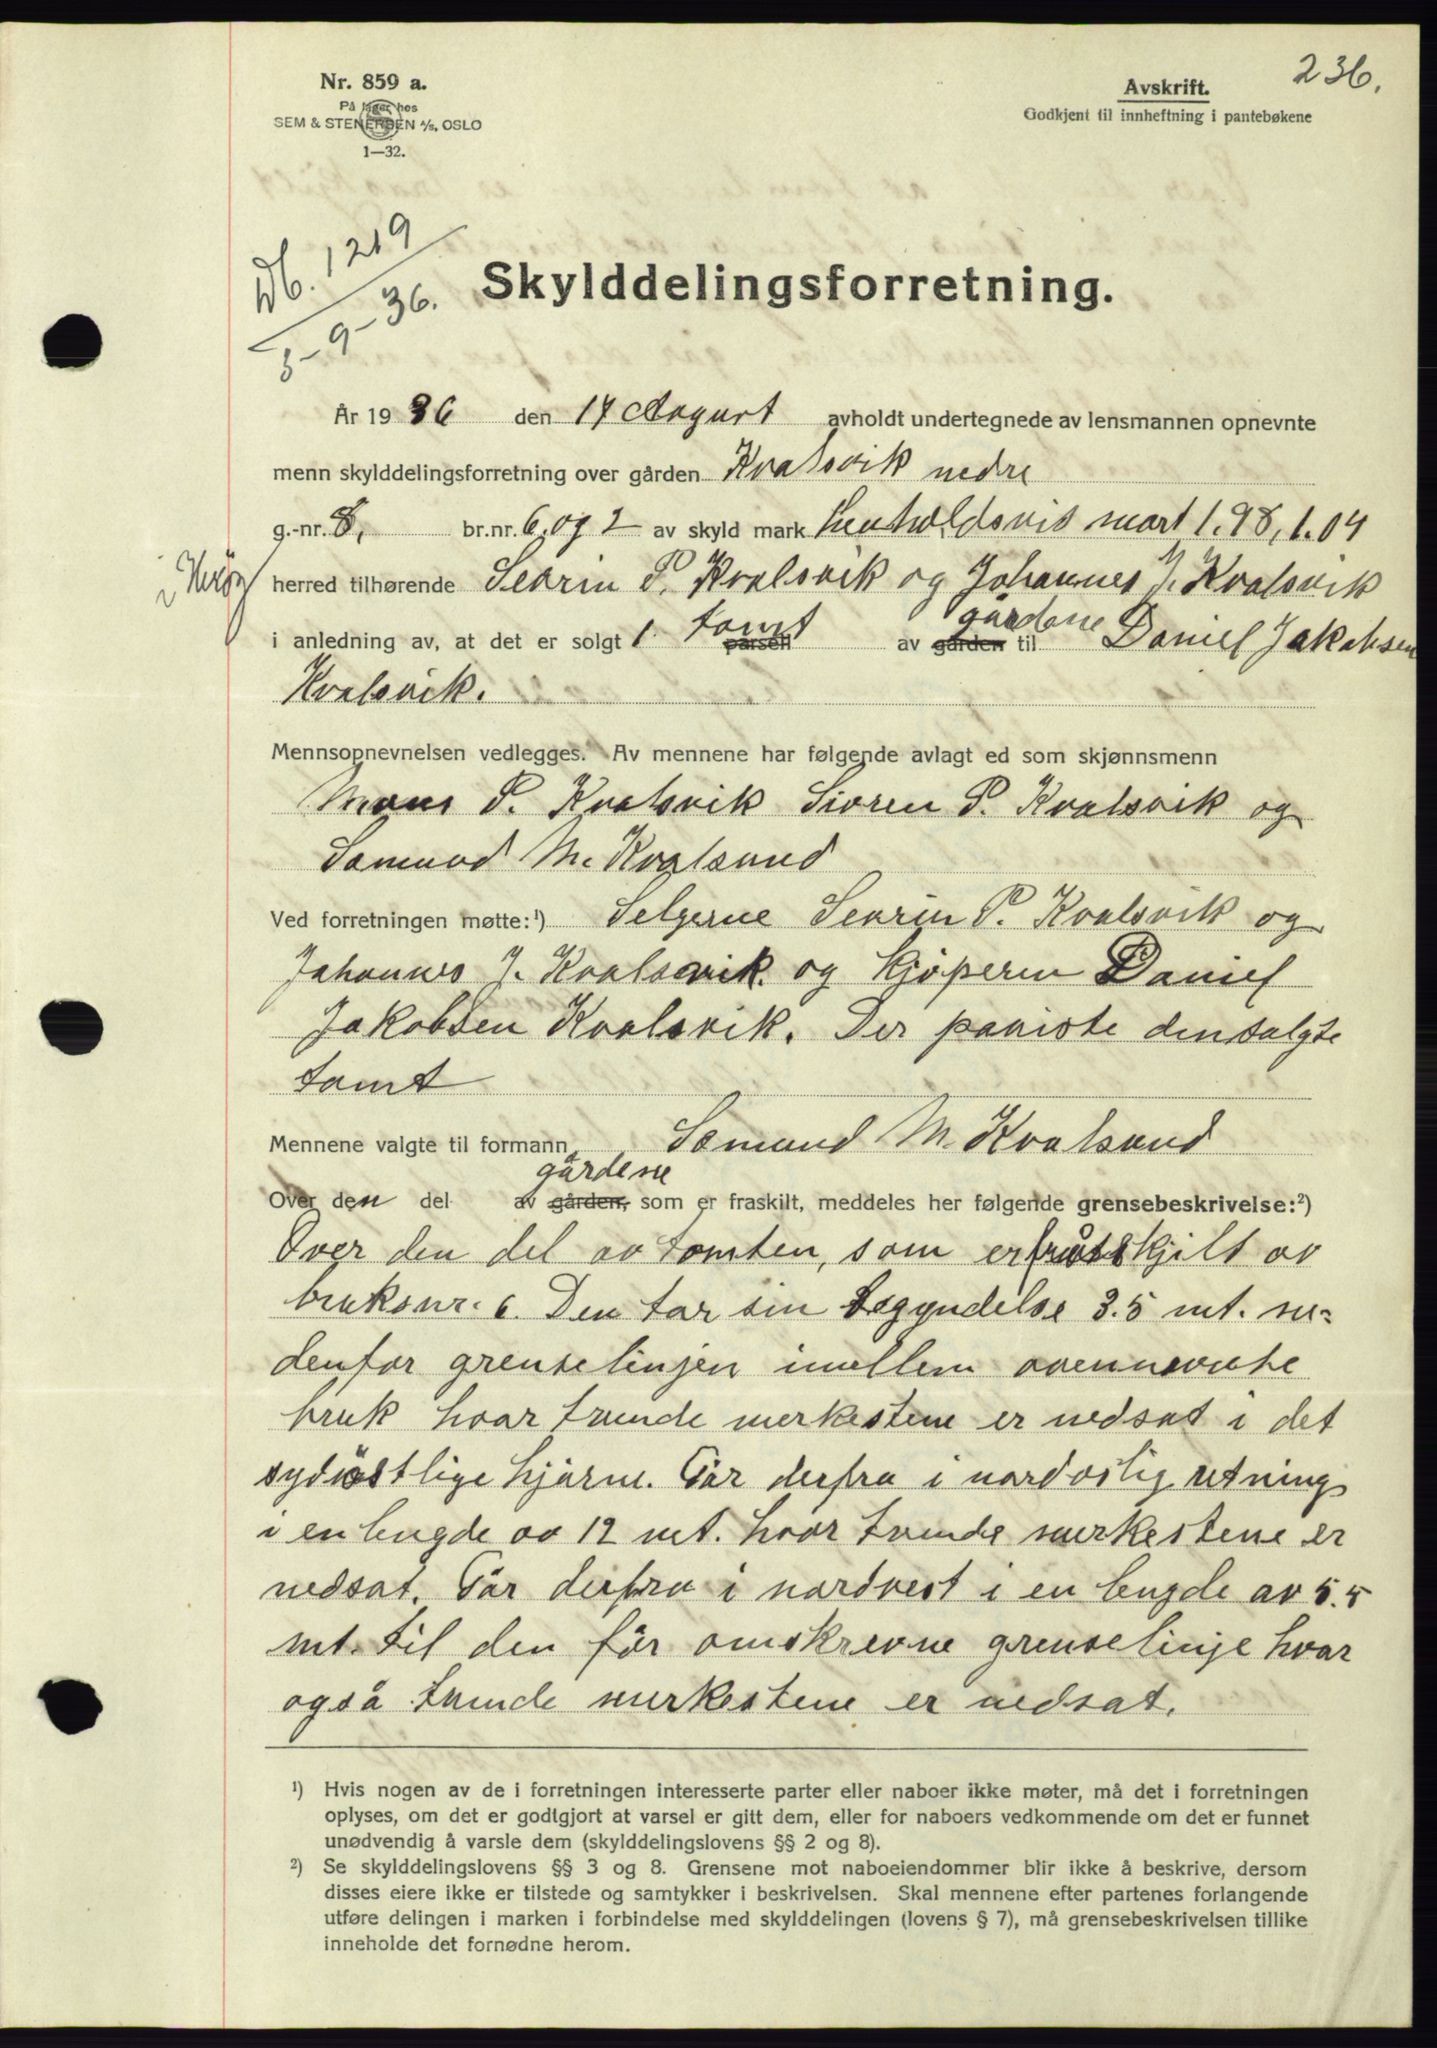 236.
Nr. 859 a.
På lager hos
SEM & STENERSEN A/S, OSLO
1—32.
Avskrift.
Godkjent til innheftning i pantebøkene
Db. 1219
3-9-36.
Skylddelingsforretning.
År 1936 den 14 August avholdt undertegnede av lensmannen opnevnte
menn skylddelingsforretning over gården Kvalsvik nedre
g.-nr. 8, br.nr. 6 og 2 av skyld mark henholdsvis mark 1.98, 1.04
i Herøy herred tilhørende Sevrin P. Kvalsvik og Johannes J. Kvalsvik
i anledning av, at det er solgt 1. tomt parsell av gården gårdene til Daniel Jakobsen
Kvalsvik.
Mennsopnevnelsen vedlegges. Av mennene har følgende avlagt ed som skjønnsmenn
Mons P. Kvalsvik Sivren P. Kvalsvik og
Samund M. Kvalsund
Ved forretningen møtte:¹) Selgerne Sevrin P. Kvalsvik og
Johannes J. Kvalsvik. og kjøperen Daniel
Jakobsen Kvalsvik. Der paviste den salgte
tomt
Mennene valgte til formann Samund M. Kvalsund
Over den del av gården, gårdene som er fraskilt, meddeles her følgende grensebeskrivelse:²)
Over den del av tomten, som er fråskjilt av
bruksnr. 6. Den tar sin begyndelse 3.5 mt. ne-
denfor grenselinjen imellem ovennevnte
bruk hvor tvende merkestene er nedsat i det
sydöstlige hjørne. Går derfra i nordøstlig retning
i en lengde av 12 mt. hvor tvende merkestene er
nedsat. Går derfra i nordvest i en lengde av 5.5
mt. til den før omskrevne grenselinje hvor
også tvende merkestene er nedsat.
¹) Hvis nogen av de i forretningen interesserte parter eller naboer ikke møter, må det i forretningen
oplyses, om det er godtgjort at varsel er gitt dem, eller for naboers vedkommende om det er funnet
unødvendig å varsle dem (skylddelingslovens §§ 2 og 8).
²) Se skylddelingslovens §§ 3 og 8. Grensene mot naboeiendommer blir ikke å beskrive, dersom
disses eiere ikke er tilstede og samtykker i beskrivelsen. Skal mennene efter partenes forlangende
utføre delingen i marken i forbindelse med skylddelingen (lovens § 7), må grensebeskrivelsen tillike
inneholde det fornødne herom.